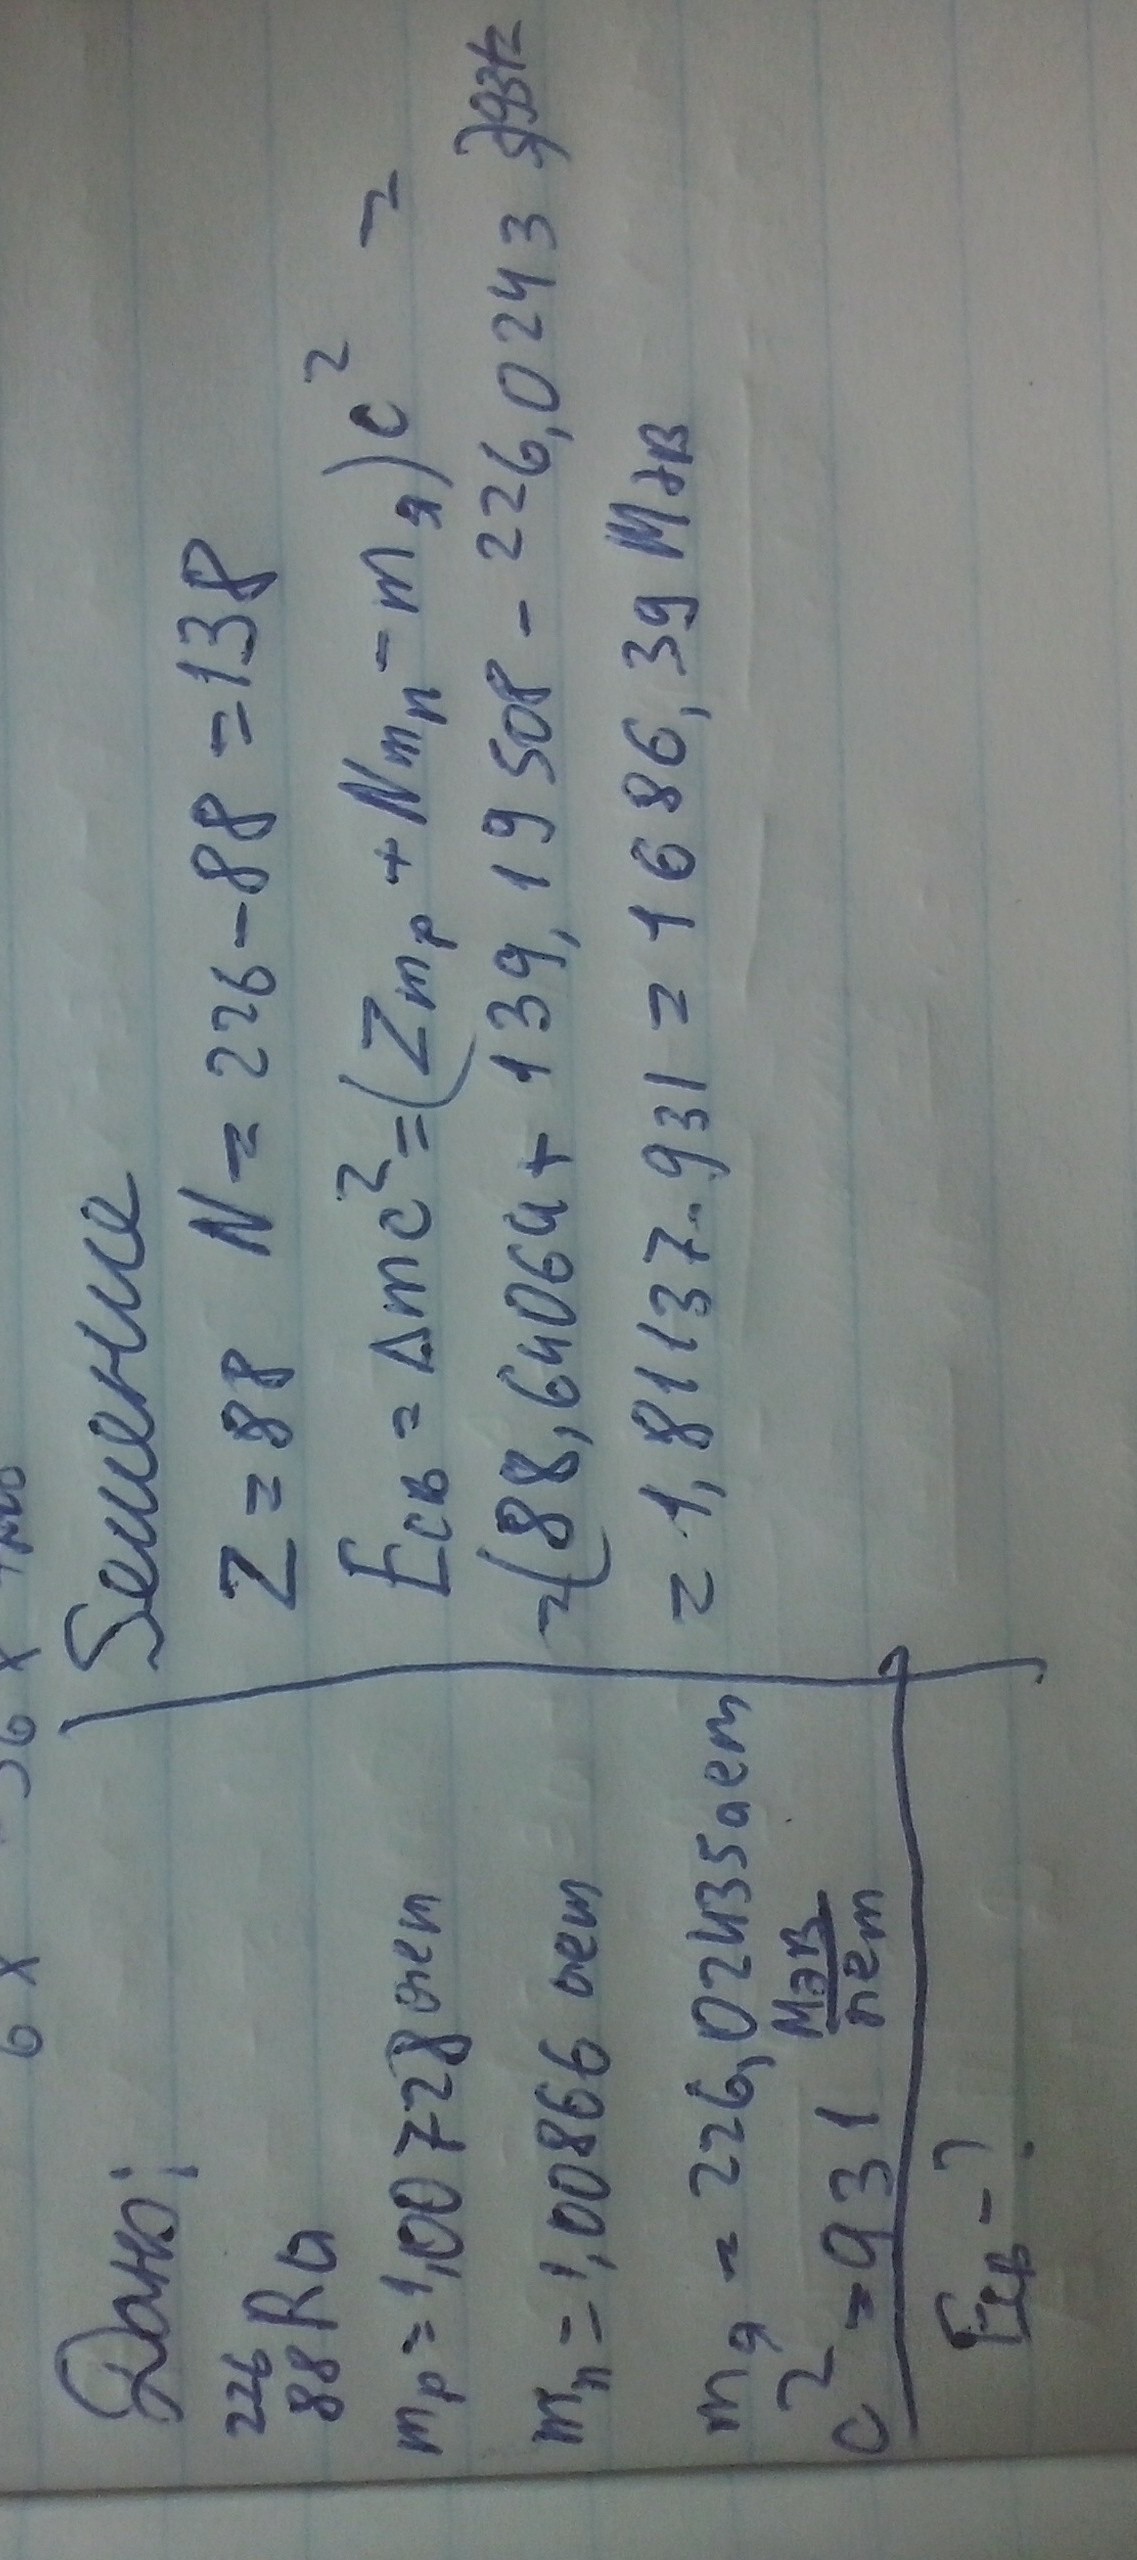 Дано:
²²⁶₈₈Ra
mₚ = 1,00728 аем
mₙ = 1,00866 аем
mя = 226,02435 аем
c² = 931 МэВ/аем
Eсв - ?
Решение
Z = 88 N = 226 - 88 = 138
Eсв = Δmc² = (Zmₚ + Nmₙ - mя)c² =
= (88,64064 + 139,19508 - 226,0243
= 1,81137 · 931 = 1686,39 МэВ